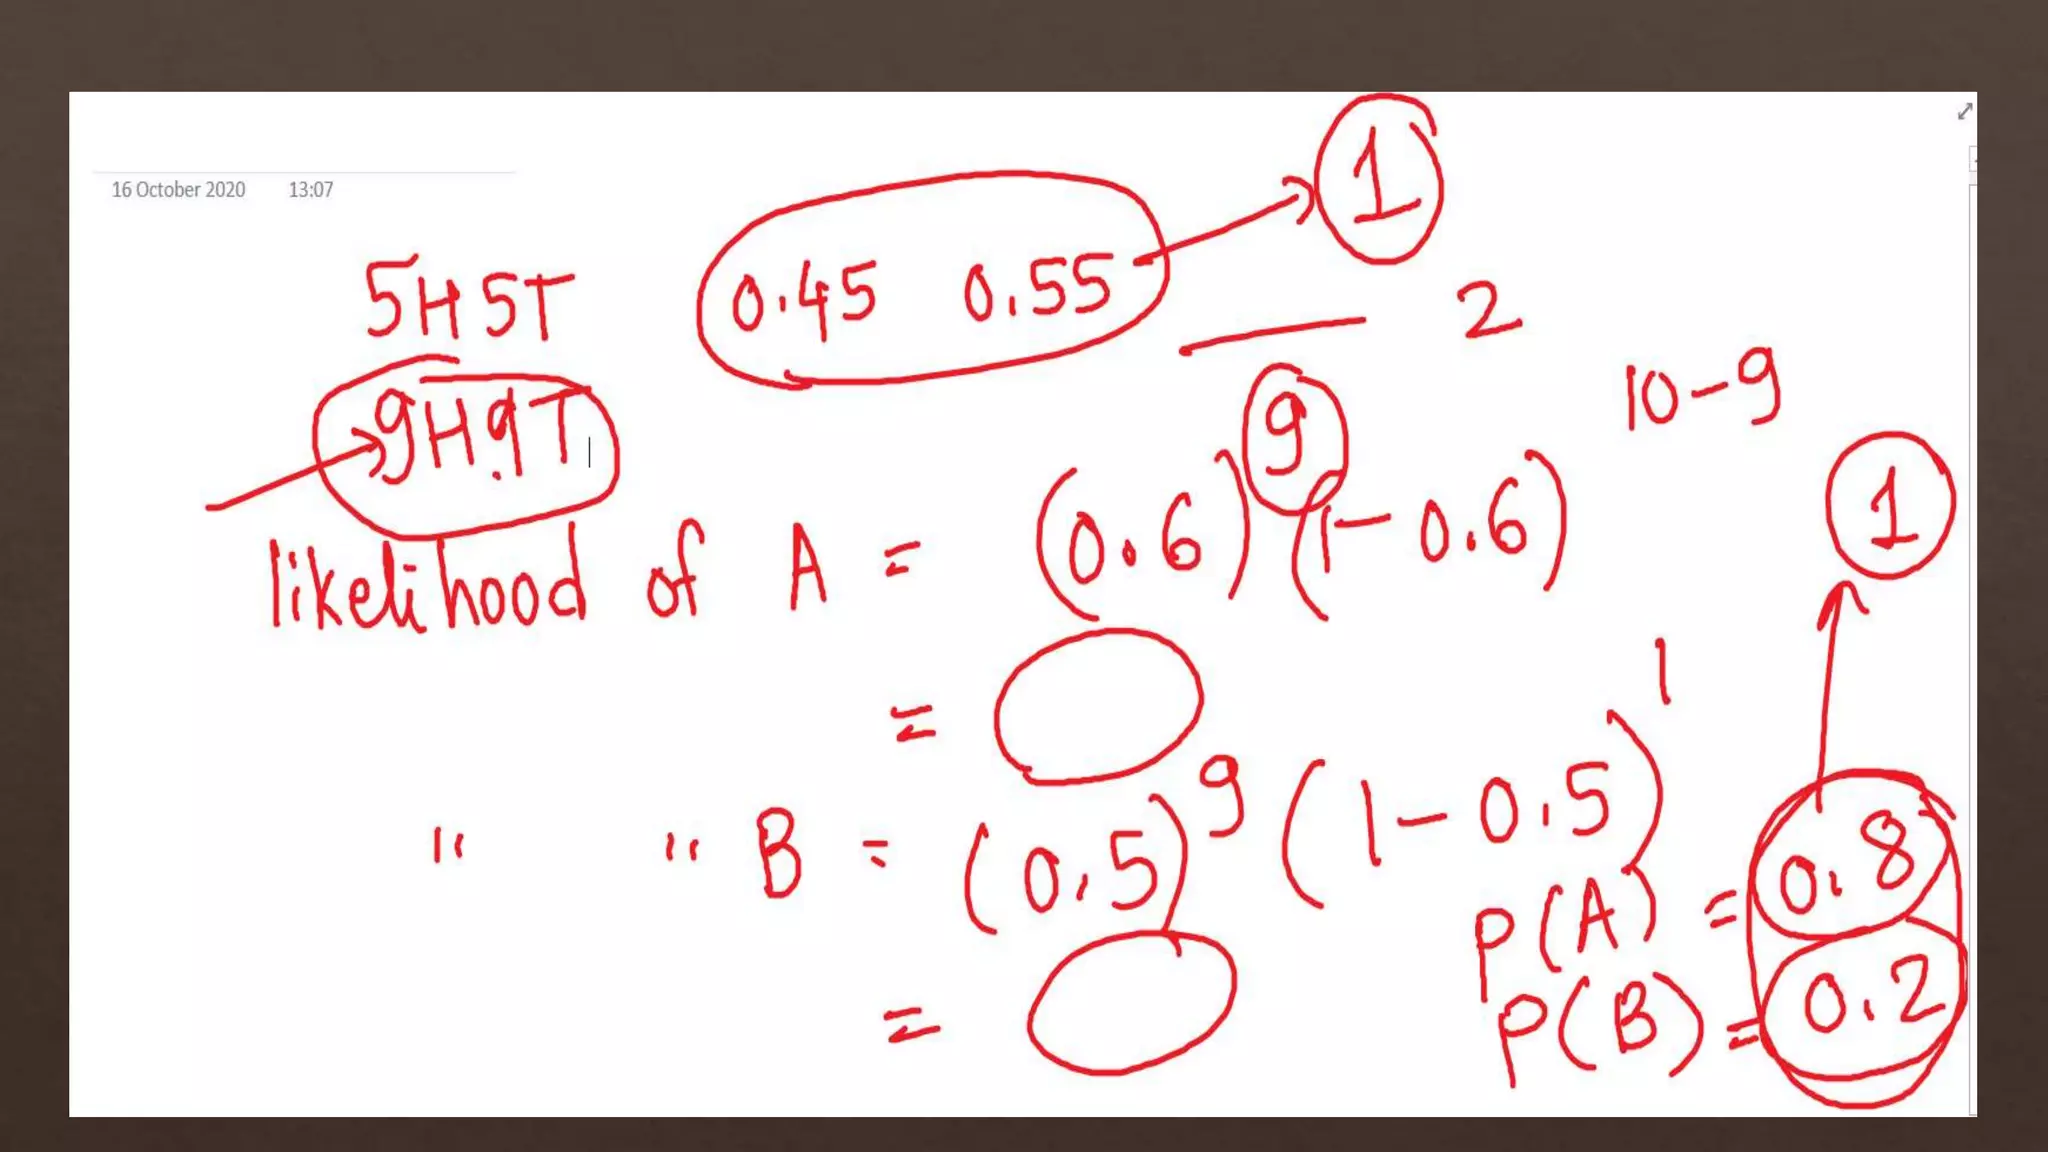 16 October 2020 13:07
1
5H5T 0.45 0.55
2
10-9
9H9T
9
likelihood of A = (0.6) (1-0.6)
1
=
1
" " B = (0.5)⁹ (1-0.5)
P(A) = 0.8
= P(B) = 0.2